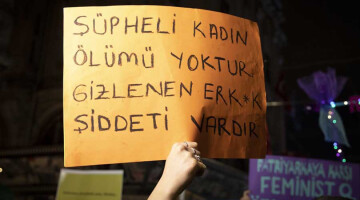 ŞÜPHELİ KADIN
ÖLÜMÜ YOKTUR,
GİZLENEN ERK*K
ŞİDDETİ VARDIR
PATRİYARKAYA KARŞI
FEMİNİST